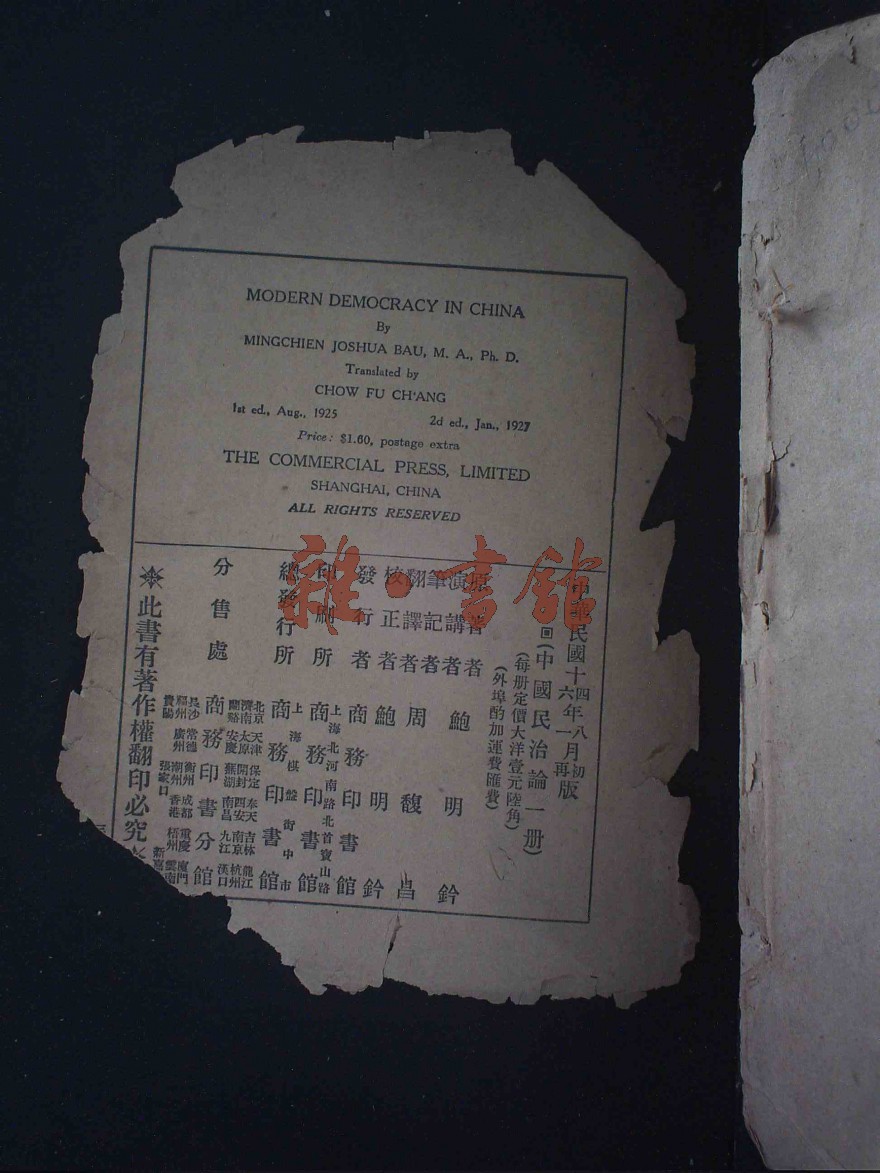 MODERN DEMOCRACY IN CHINA
By
MINGCHIEN JOSHUA BAU, M. A., Ph. D.
Translated by
CHOW FU CH'ANG
1st ed., Aug., 1925 2d ed., Jan., 1927
Price: $1.60, postage extra
THE COMMERCIAL PRESS, LIMITED
SHANGHAI, CHINA
ALL RIGHTS RESERVED
中華民國十四年八月初版
六年一月再
(中國民治論一册)
(每册定價大洋壹元陸角)
(外埠酌加運費匯費)
原著者 鮑明鈐
演講者
筆記者
翻譯者 周馥昌
校正者 鮑明鈐
發行者 商務印書館
印刷所 上海北河南路北首寶山路 商務印書館
總發行所 上海棋盤街中市 商務印書館
分售處 商務印書分館
北京 天津 保定 奉天 吉林 龍江
濟南 太原 開封 西安 南京 杭州
蘭谿 安慶 蕪湖 南昌 九江 漢口
長沙 常德 衡州 成都 重慶 廈門
福州 廣州 潮州 香港 梧州 雲南
貴陽 張家口 新嘉
此書有著作權翻印必究
雜·書館